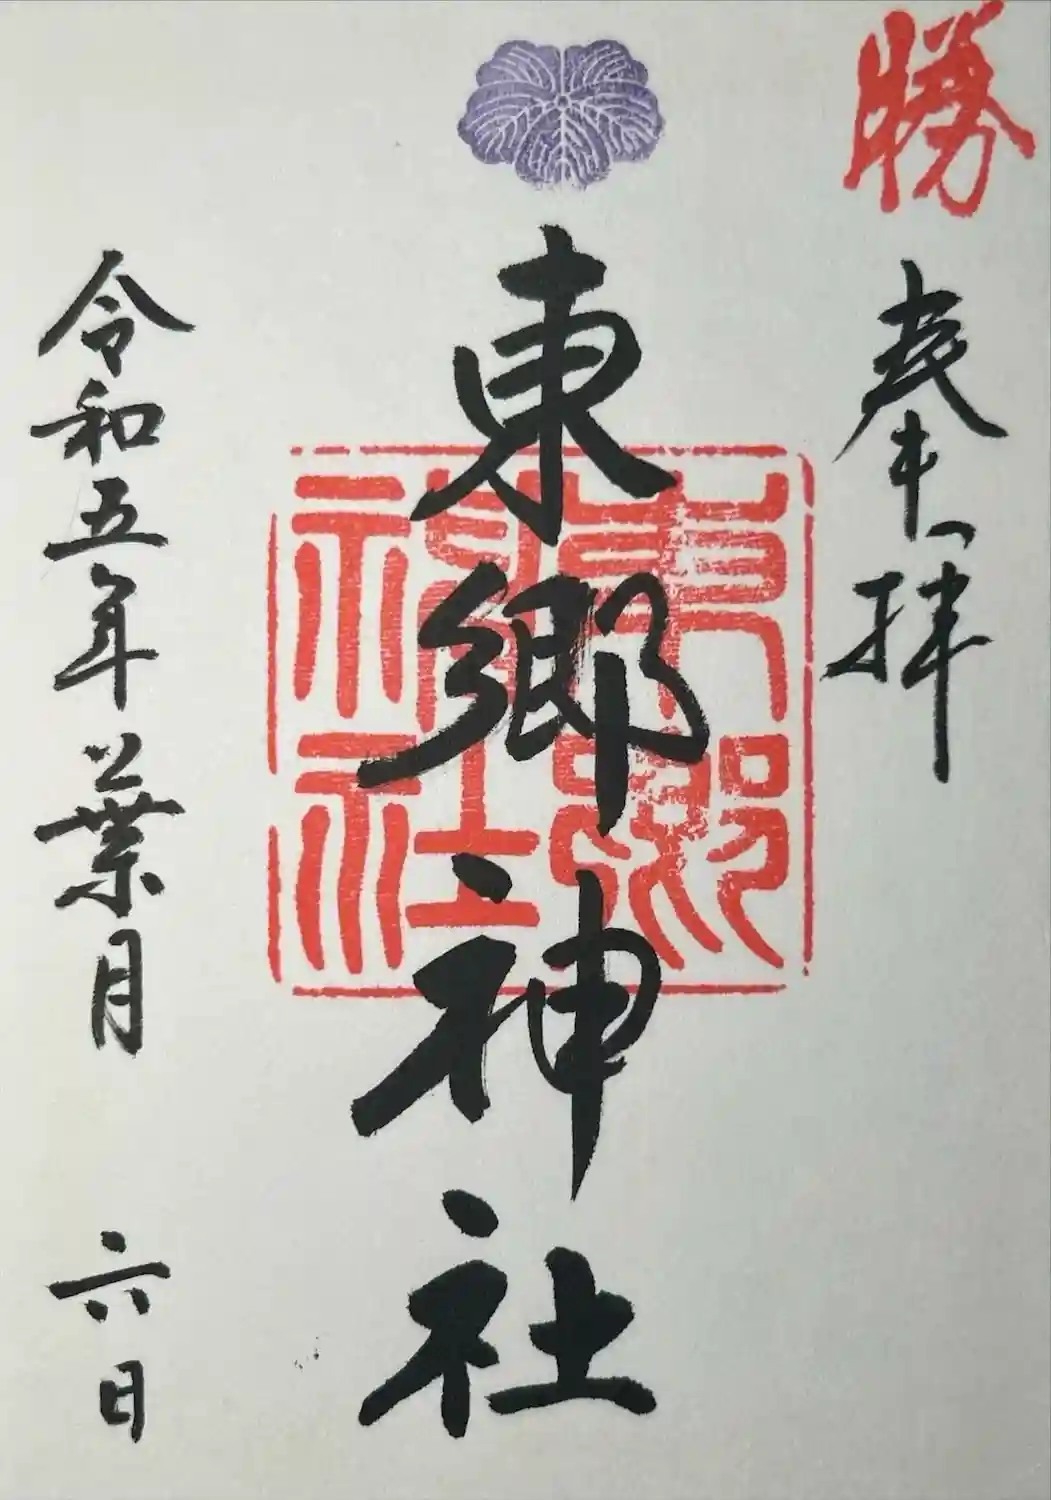 勝
奉拝
東郷神社
東郷神社
令和五年葉月六日